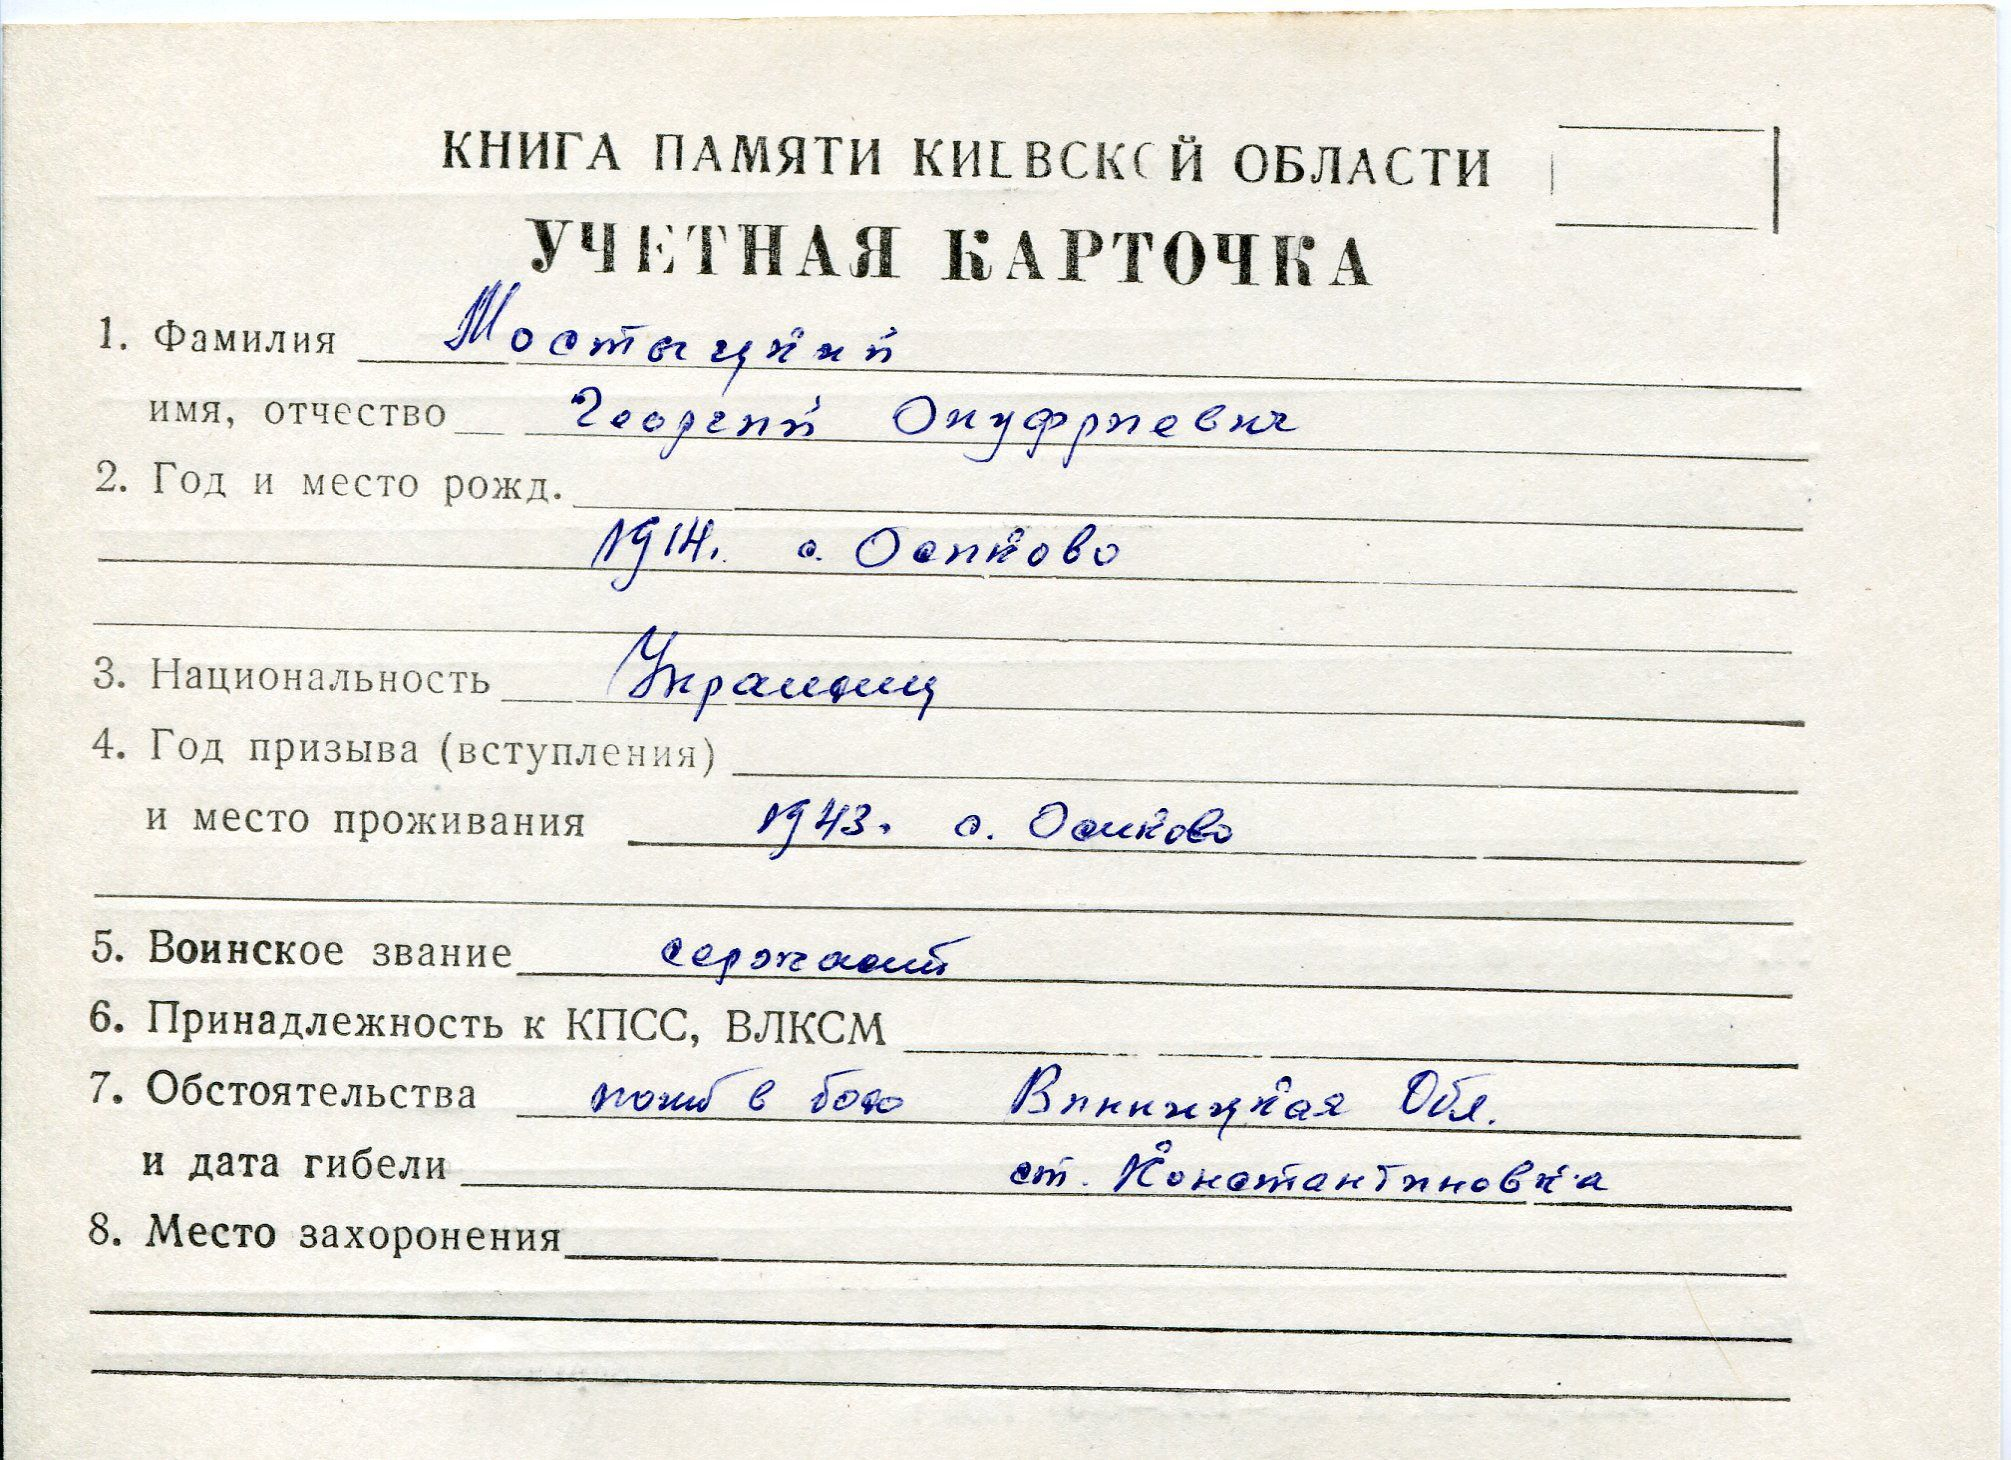 КНИГА ПАМЯТИ КИЕВСКОЙ ОБЛАСТИ
УЧЕТНАЯ КАРТОЧКА
1. Фамилия Мостыцкий
имя, отчество Георгий Онуфриевич
2. Год и место рожд.
1914. с. Осиково
3. Национальность Украинец
4. Год призыва (вступления)
и место проживания 1943. с. Осиково
5. Воинское звание сержант
6. Принадлежность к КПСС, ВЛКСМ
7. Обстоятельства погиб в бою Винницкая Обл.
и дата гибели ст. Константиновка
8. Место захоронения